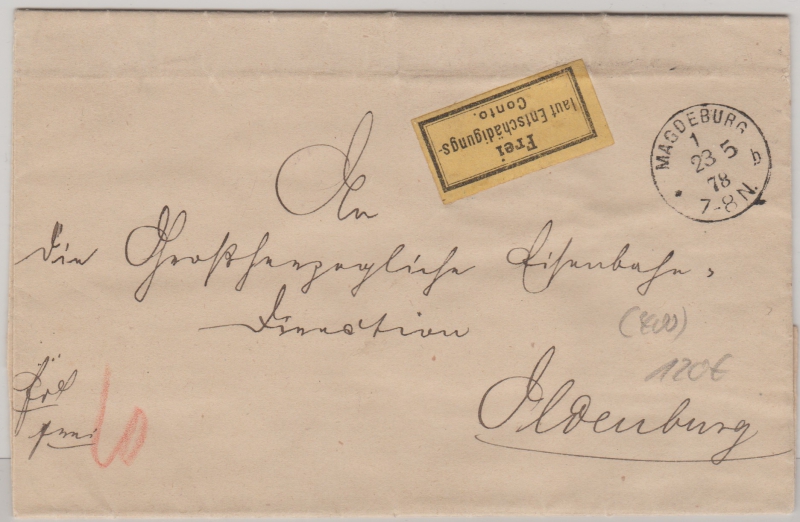 Frei
laut Entschädigungs-
Conto.
MAGDEBURG
1
23 5
78
7-8 N.
An
die Großherzogliche Eisenbahn-
Direction
Oldenburg
frei
120€